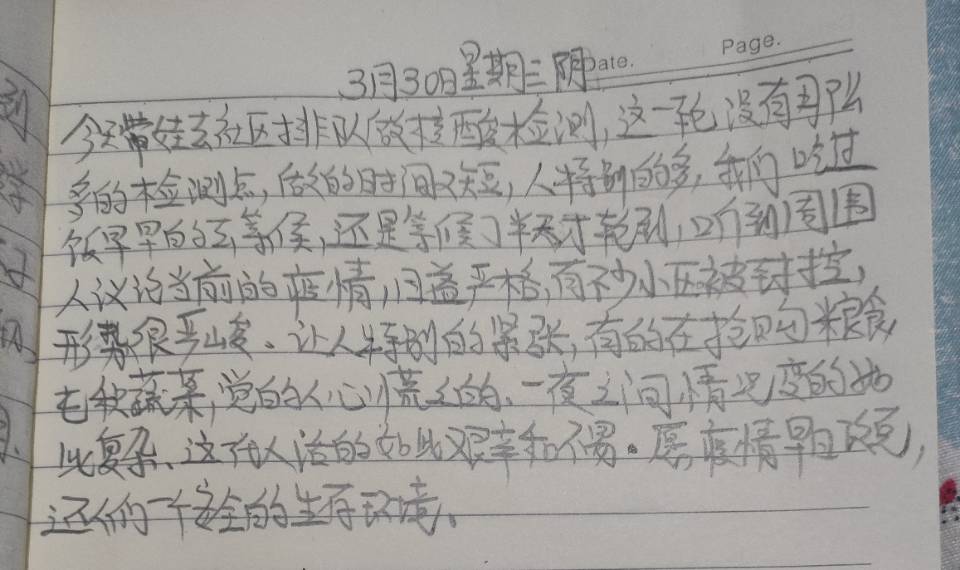 Page.
Date.
3月30日星期三 阴
今天带娃去社区排队做核酸检测,这一轮没有那么
多的检测点,做的时间又短,人特别的多,我们吃过
饭早早的去等候,还是等候了半天才轮到,听到周围
人议论当前的疫情,日益严格,有不少小区被封控,
形势很严峻、让人特别的紧张,有的在抢购粮食,
屯积蔬菜,觉的人心慌慌的、一夜之间情况变的如
此复杂、这代人活的如此艰辛和不易。愿疫情早日,
还人们一个安全的生存环境、